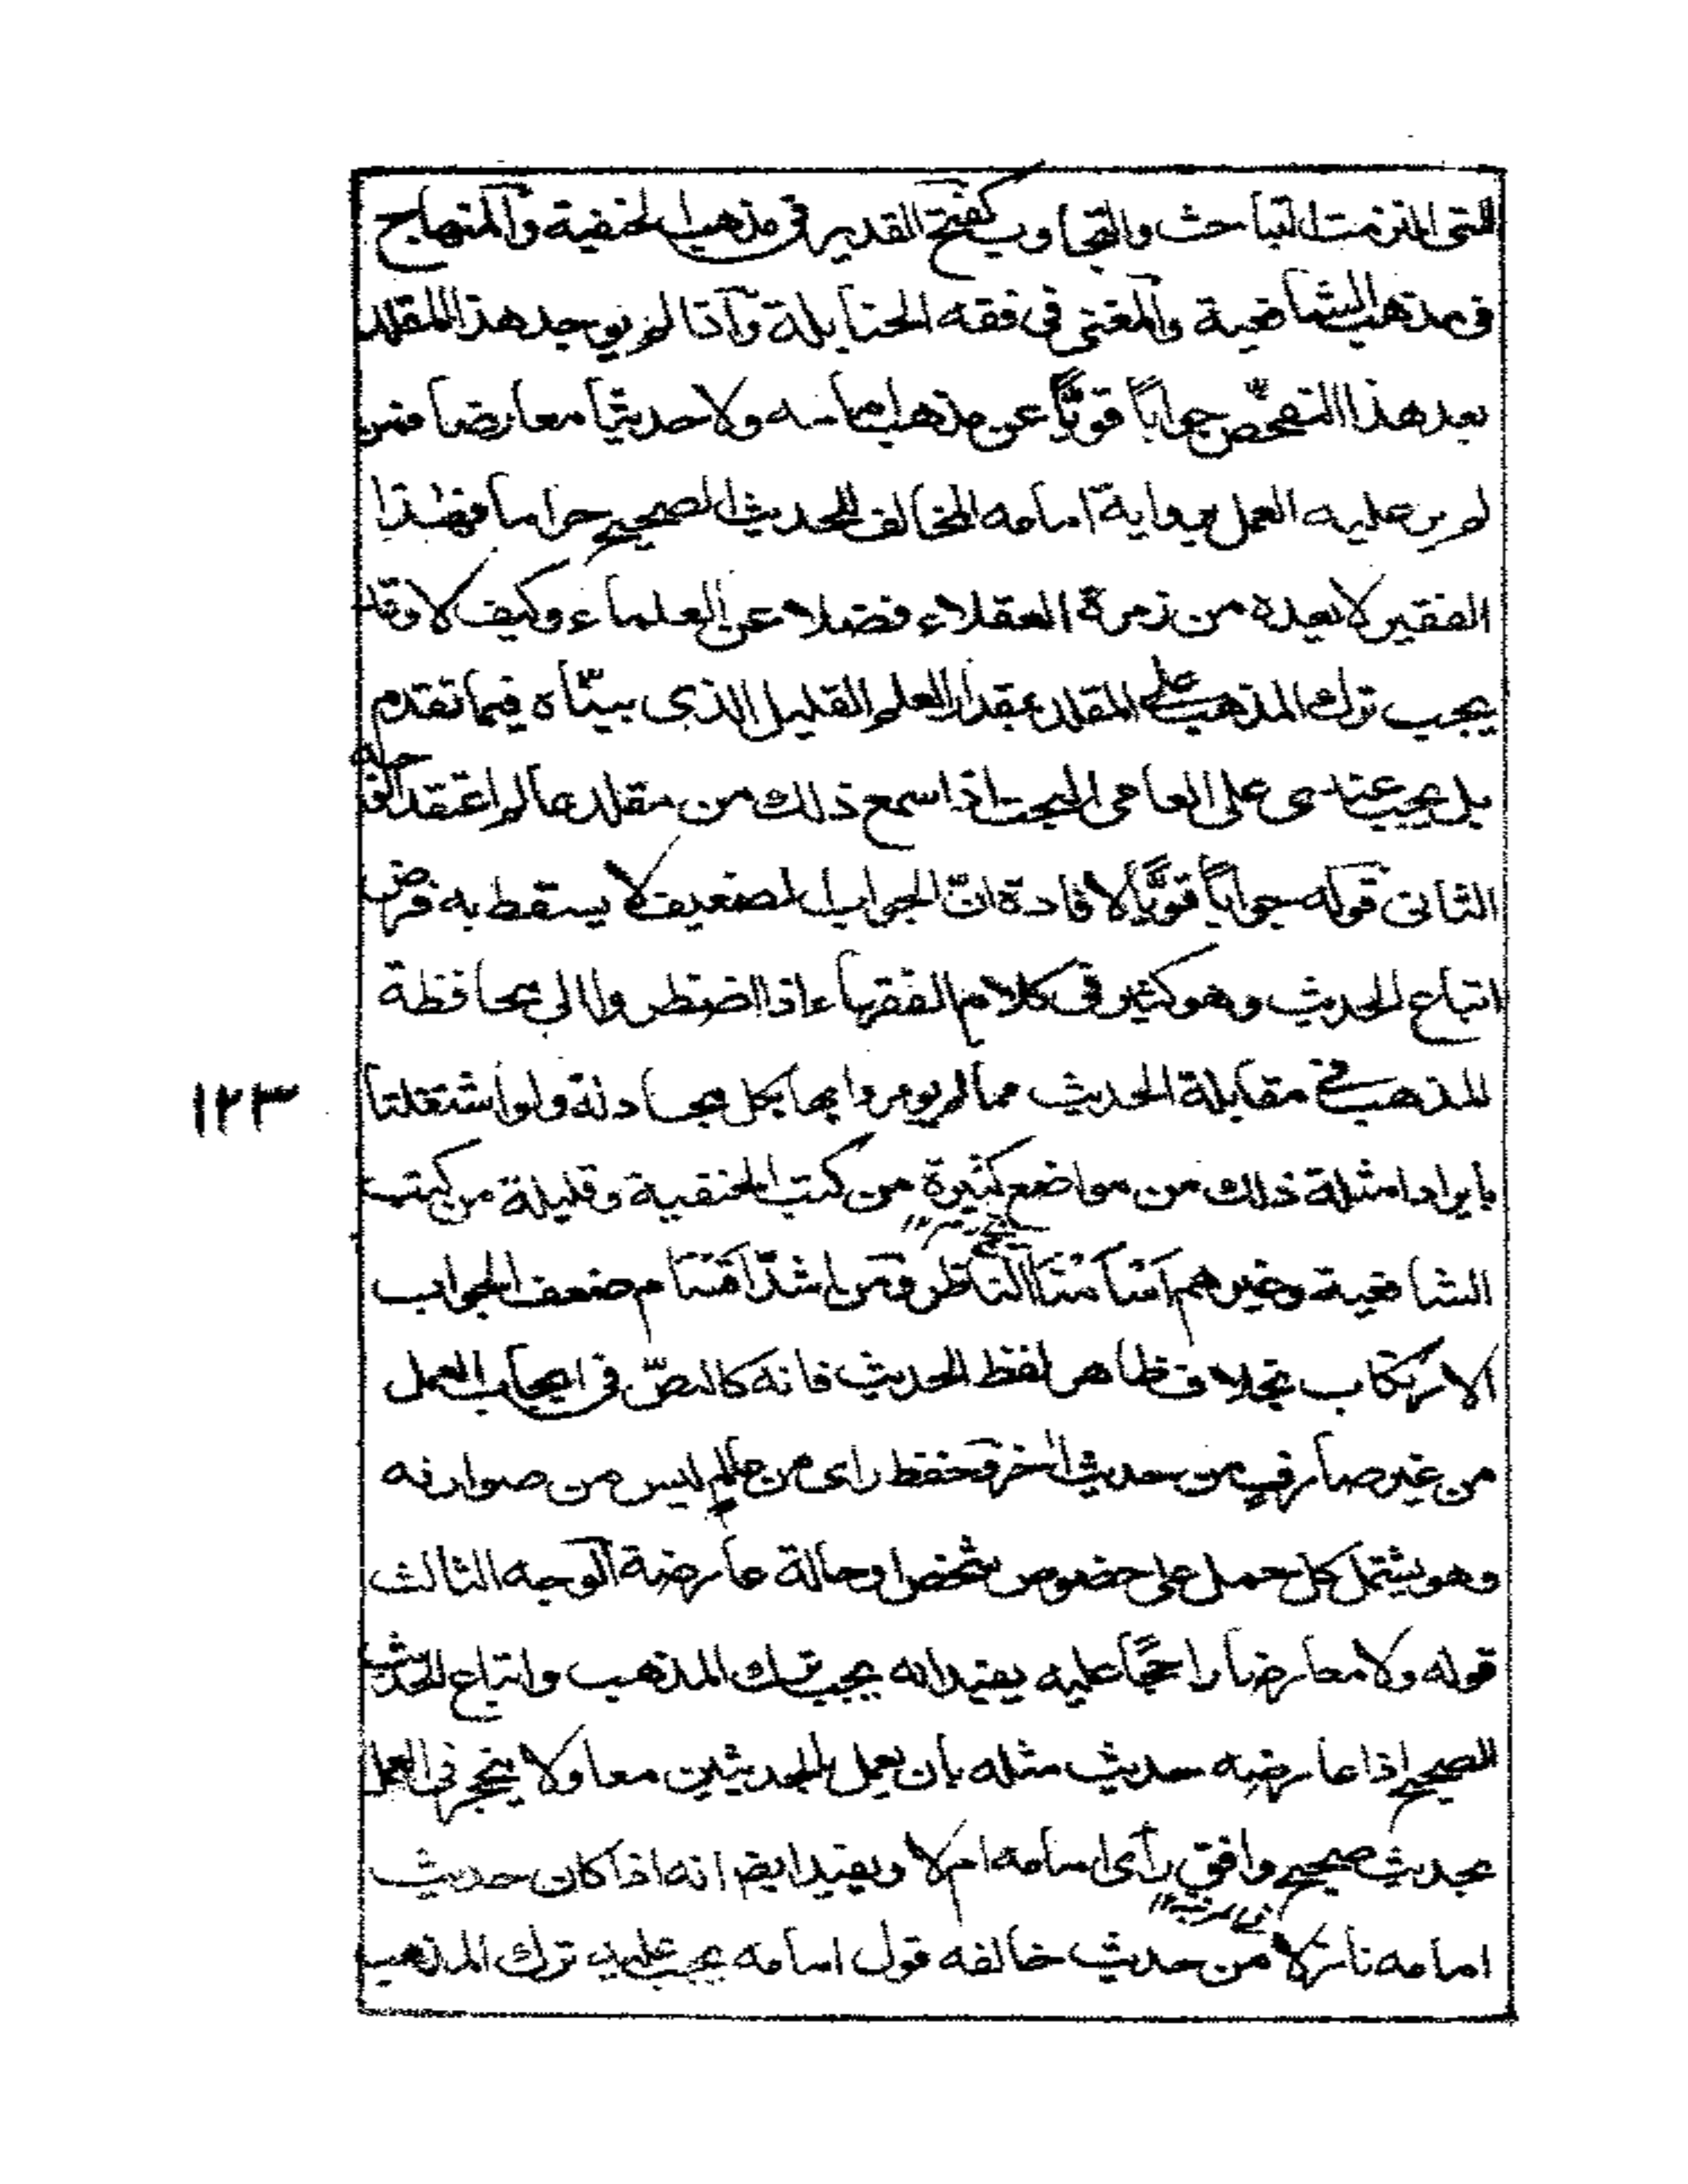 التى التزمت التباحث والتجاوب كفتح القدير فى مذهب الحنفية والمنهاج
فى مذهب الشافعية والمغنى فى فقه الحنابلة وآذا لم يوجد هذا المقلد
بعد هذا التفحّص جواباً قويّاً عن مذهب امامه ولا حديثاً معارضا فمن
لم ير عليه العمل برواية امامه المخالف للحديث الصحيح حراما فهذا
الفقير لا يعده من زمرة العقلاء فضلا عن العلماء وكيف لا وقد
يجب ترك المذهب على المقلد بمقدار العلم القليل الذى بينّاه فيما تقدم
بل يجب عندى على العامى البحت اذا سمع ذلك من مقلد عالم اعتقد
الثانى قوله جواباً قويّاً لافادة انّ الجواب الضعيف لا يسقط به فرض
اتباع الحديث وهو كثير فى كلام الفقهاء اذا اضطروا الى محافظة
المذهب فى مقابلة الحديث مما لم يومروا بها بكل مجادلة ولو اشتغلنا
بايراد امثلة ذلك من مواضع كثيرة من كتب الحنفية وقليلة من كتب
الشافعية وغيرهم الناظر ومن اشدّ اقسام ضعف الجواب
الارتكاب بخلاف ظاهر لفظ الحديث فانه كالنصّ فى ايجاب العمل
من غير صارفٍ من حديث اخر فحفظ راى من عالمٍ ليس من صوارفه
وهو يشتمل كل حمل على خصوص شخص او حالة عارضة الوجه الثالث
قوله ولا معارضا راجحًا عليه يفيد انه يجب ترك المذهب واتباع الحديث
الصحيح اذا عارضه حديث مثله بان يعمل بالحديثين معا ولا ينحجر فى العمل
بحديث صحيح وافق رأى امامه ام لا ويفيد ايضا انه اذا كان حديث
امامه نازلا من حديث خالفه قول امامه يجب عليه ترك المذهب
١٢٣